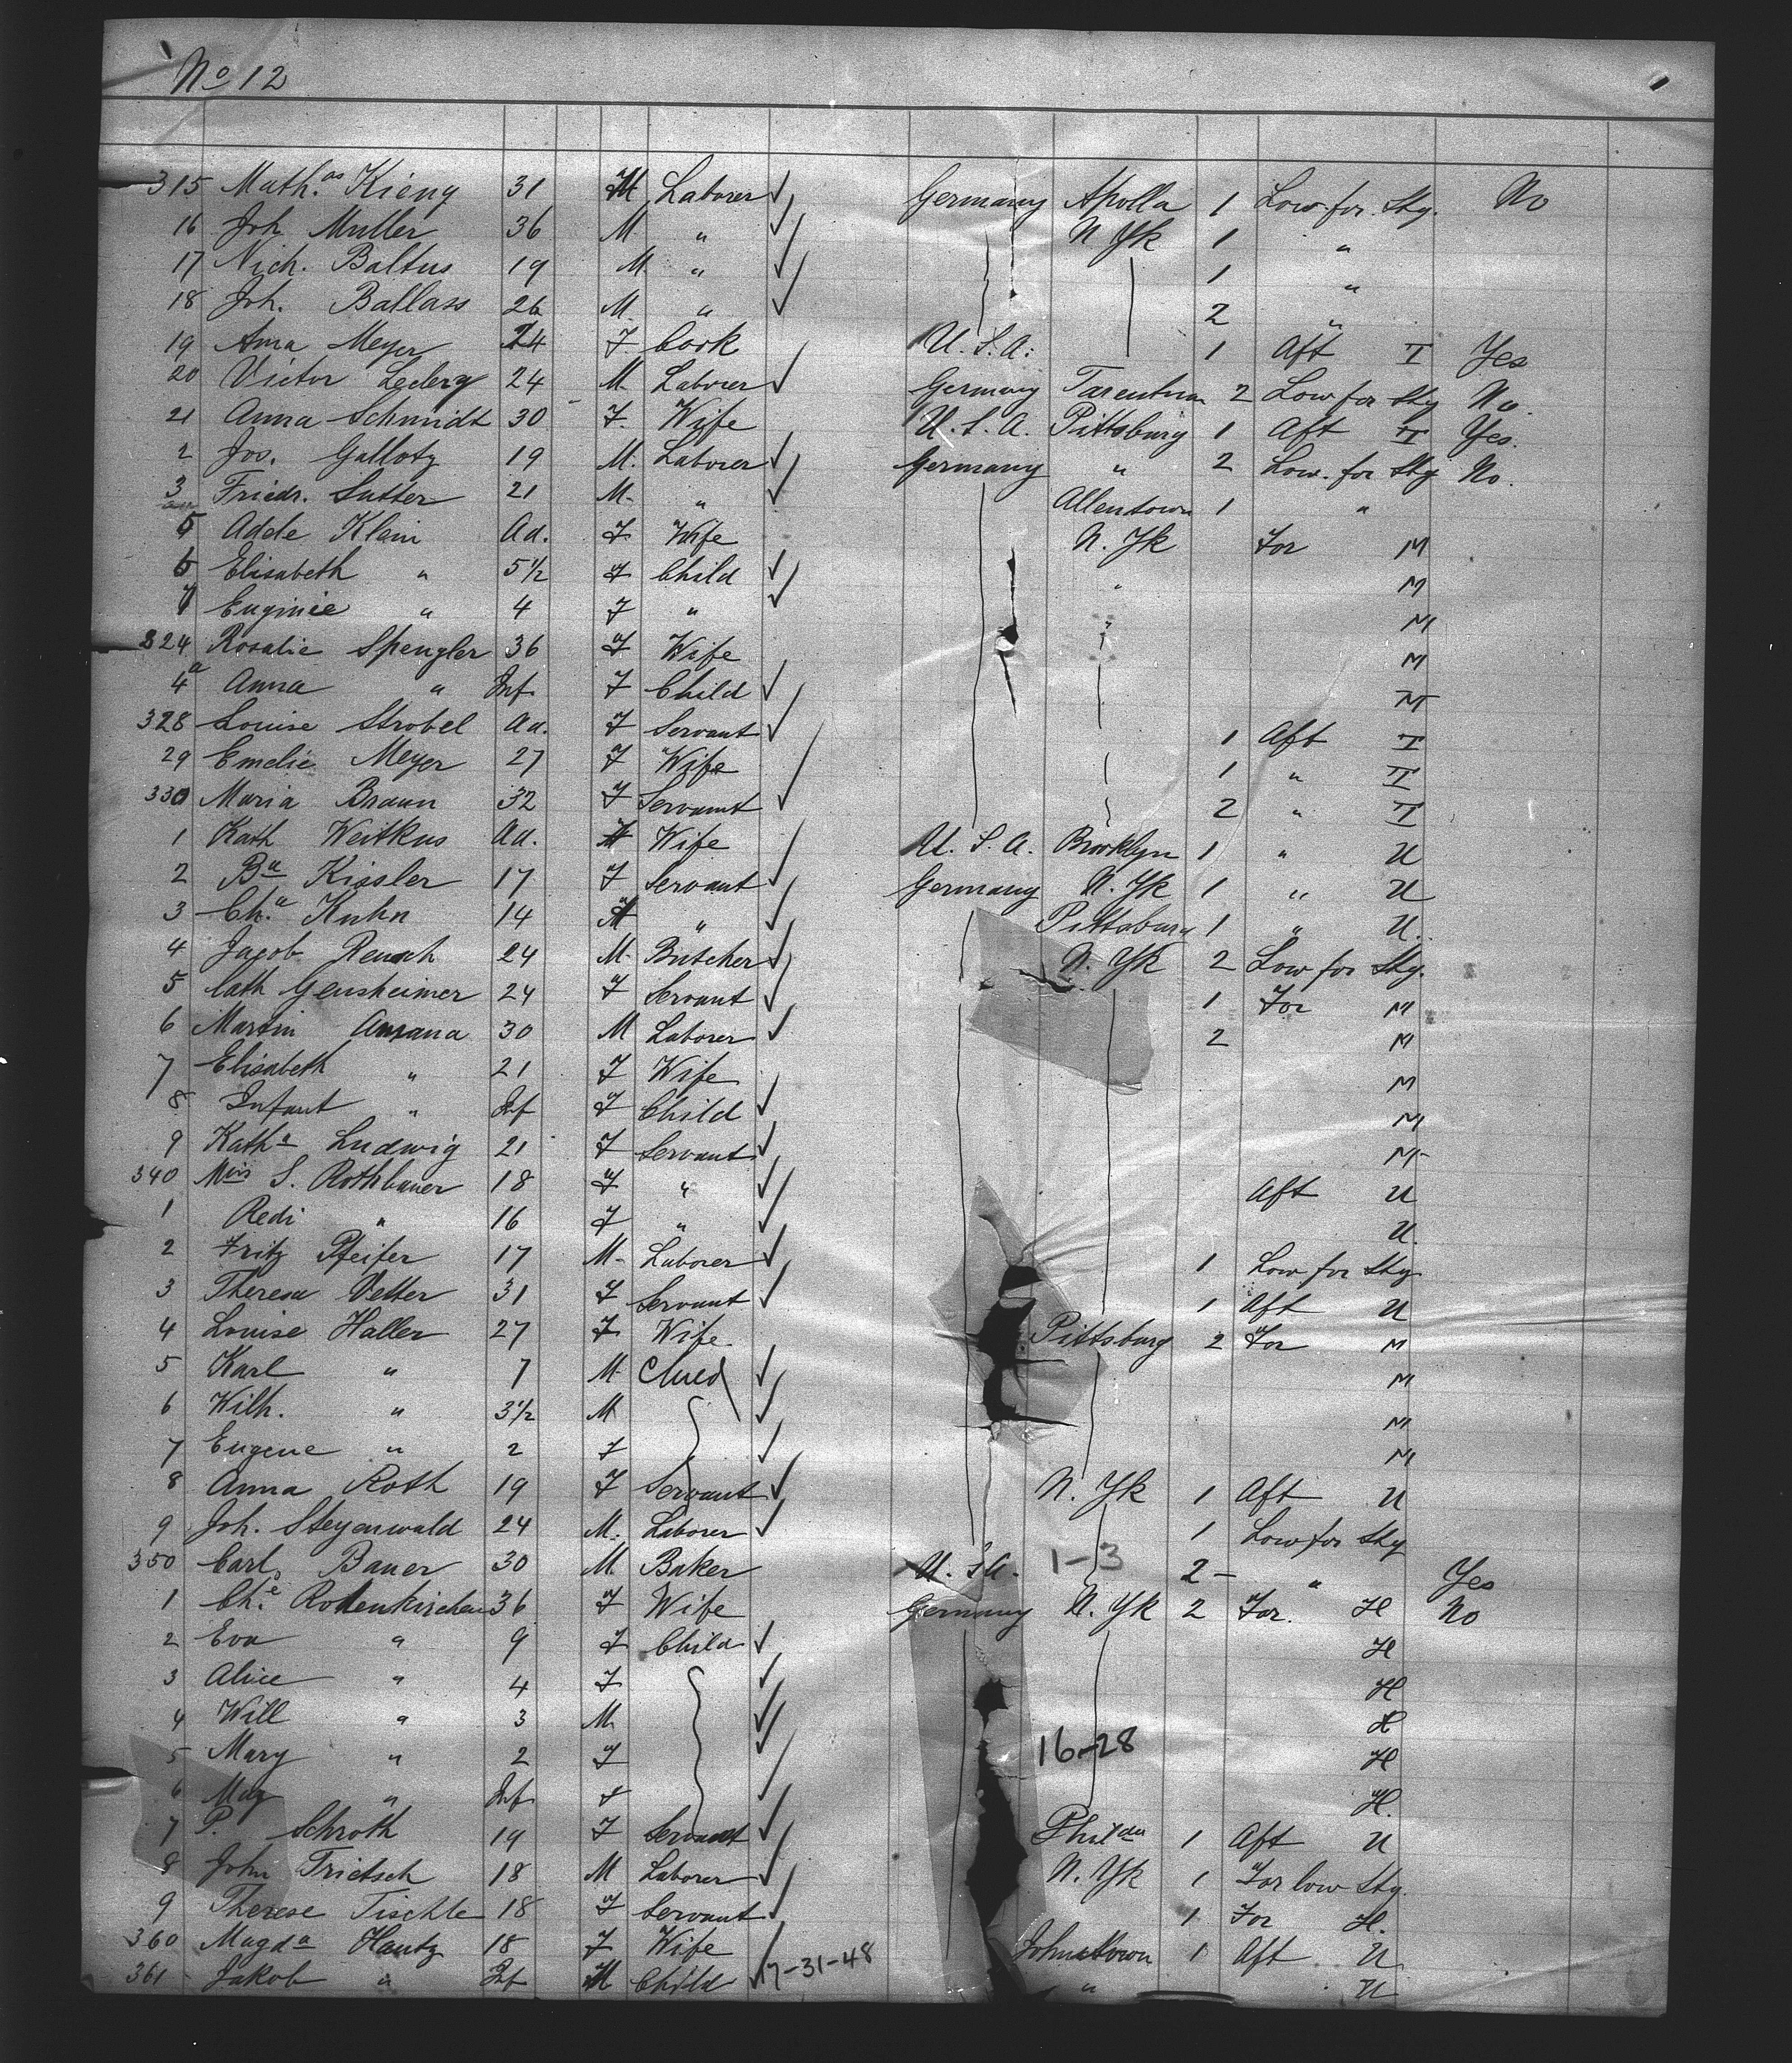 No 12
315 Math.as Kieny 31 M Laborer Germany Apolla 1 Low. for. Stg. No
16 Joh Muller 36 M " N Yk 1 "
17 Nich. Baltus 19 M. " 1 "
18 Joh. Ballass 26 M. " 2 "
19 Anna Meyer 24 F. Cook U. S. A. 1 Aft T Yes
20 Victor Leclerq 24 M. Laborer Germany Tarentum 2 Low for Stg No.
21 Anna Schmidt 30 F. Wife U. S. A. Pittsburg 1 Aft T Yes.
2 Jos. Gallotz 19 M. Laborer Germany " 2 Low. for Stg No.
3 Friedr. Sutter 21 M. " Allentown 1 "
5 Adele Klein Ad. F Wife N. Yk For M
6 Elisabeth " 5 1/2 F Child " M
7 Euginie " 4 F " " M
324 Rosalie Spengler 36 F Wife M
4a Anna " Inf F Child M
328 Louise Strobel Ad. F Servant 1 Aft T
29 Emelie Meyer 27 F Wife 1 " T
330 Maria Braun 32 F Servant 2 " T
1 Kath Weitkus Ad. F Wife U. S. A. Brooklyn 1 " U
2 Ba Kissler 17 F Servant Germany N. Yk 1 " U
3 Ch.a Kuhn 14 " Pittsburg 1 " U.
4 Jacob Reusch 24 M. Butcher N. Yk 2 Low for Stg.
5 Cath Gensheimer 24 F Servant 1 For M
6 Martin 30 M Laborer 2 M
7 Elisabeth " 21 F Wife M
8 Infant " Inf F Child M
9 Katha Ludwig 21 F Servant M
340 Miss S. Rothbauer 18 F " Aft U
1 Redi " 16 F " U.
2 Fritz Pfeifer 17 M. Laborer 1 Low for Stg
3 Theresa Vetter 31 F Servant 1 Aft U
4 Louise Haller 27 F Wife Pittsburg 2 For M
5 Karl " 7 M. Child M
6 Wilh. " 3 1/2 M M
7 Eugene " 2 F M
8 Anna Roth 19 F Servant N. Yk 1 Aft U
9 Joh. Steyerwald 24 M. Laborer 1 Low for Stg
350 Carl Bauer 30 M. Baker U. S. A. 1-3 2 - " Yes
1 Ch.e Rottenkirchen 36 F Wife Germany N. Yk 2 For. H No
2 Eva " 9 F Child H
3 Alice " 4 F H
4 Will " 3 M. H
5 Mary " 2 F 16-28 H
6 May " Inf F H.
7 P. Schroth 19 F Servant Philda 1 Aft U
8 John Trietsch 18 M Laborer N. Yk 1 For low Stg.
9 Therese Tischle 18 F Servant 1 For H.
360 Magda Hautz 18 F Wife Johnstown 1 Aft U
361 Jakob " Inf M Child 17-31-48 " U